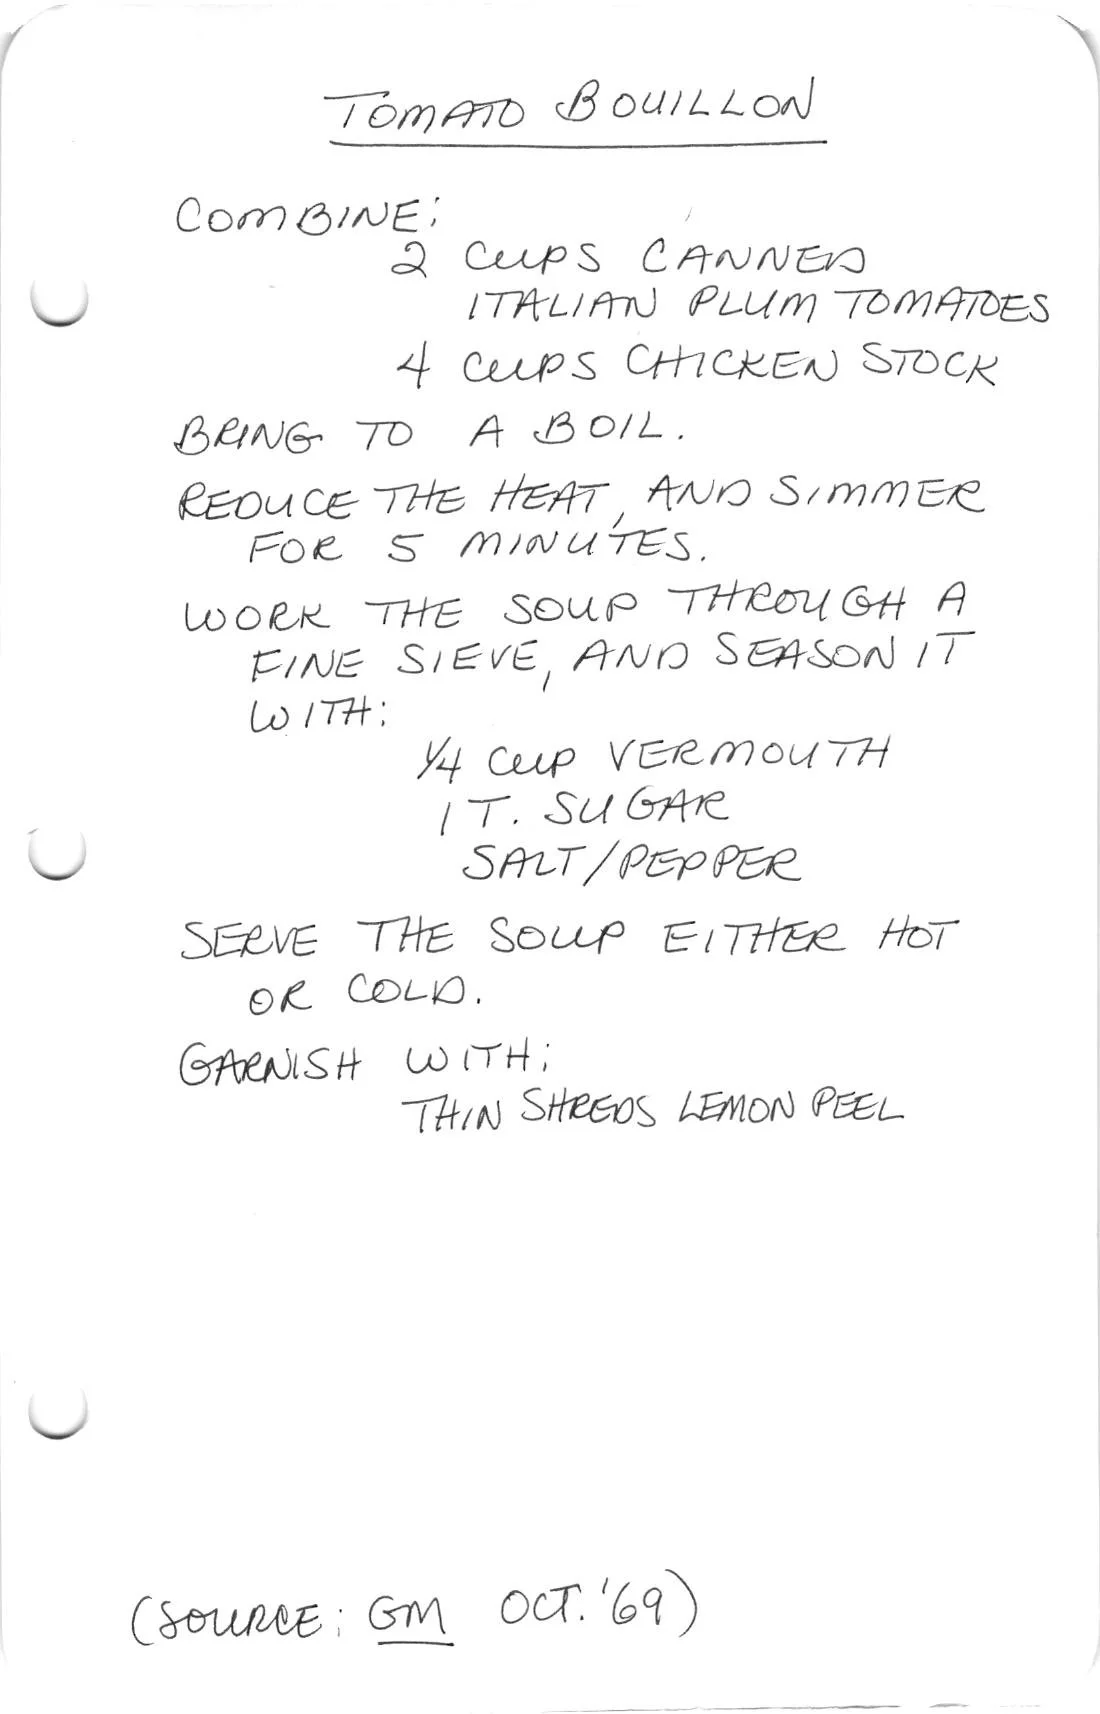 TOMATO BOUILLON
COMBINE:
2 CUPS CANNED
ITALIAN PLUM TOMATOES
4 CUPS CHICKEN STOCK
BRING TO A BOIL.
REDUCE THE HEAT, AND SIMMER
FOR 5 MINUTES.
WORK THE SOUP THROUGH A
FINE SIEVE, AND SEASON IT
WITH:
1/4 CUP VERMOUTH
1 T. SUGAR
SALT/PEPPER
SERVE THE SOUP EITHER HOT
OR COLD.
GARNISH WITH:
THIN SHREDS LEMON PEEL
(SOURCE: GM OCT. '69)